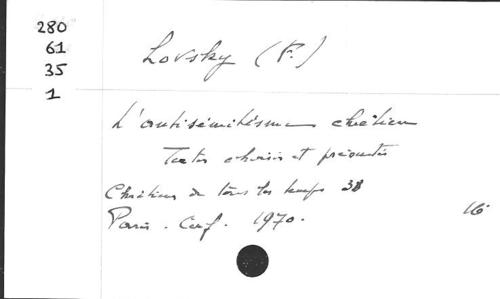 280
61
35
1
Lovsky (F.)
L'antisémitisme chrétien
Textes choisis et présentés
Chrétiens de tous les temps 38
Paris. Cerf. 1970.
16°